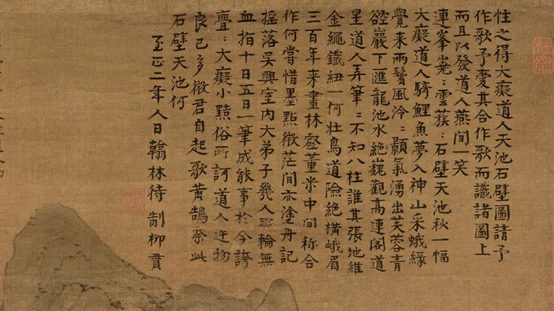 性之得大癡道人天池石壁圖請予
作歌予愛其合作歌而識諸圖上
而且以發道人燕間一笑
連峯雲蔟:石壁天池秋一幅
大癡道人騎鯉魚夢入神山采蛾綠
覺來兩鬢風泠:顥氣湧出芙蓉青
嵌巖下匯龍池水絕巘觀高連閣道
星道人弄筆:不知八柱誰其張地維
金繩鐵紐一何壯鳥道險絕橫峨眉
三百年來畫林壑董米中間稱合
作何嘗惜墨點微茫間亦塗丹記
搖落吳興室內大弟子幾人斲輪無
血指十日五日一筆成能事於今誇
亹:大癡小黠俗所訶道人迕物
良已多微君自起歌黃鵠奈此
石壁天池何
至正二年人日翰林待制柳貫